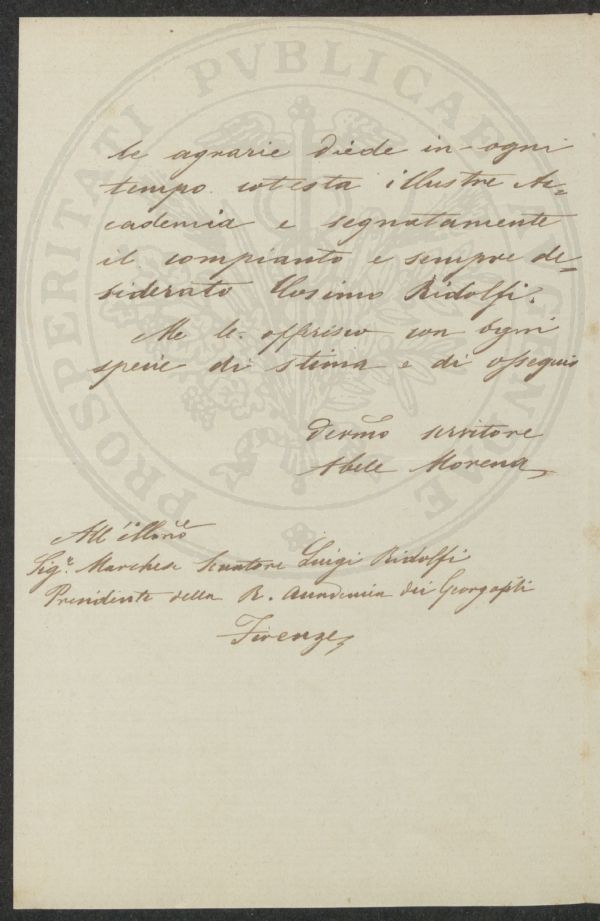 le agrarie diede in ogni
tempo cotesta illustre Ac=
cademia e segnatamente
il compianto e sempre de=
siderato Cosimo Ridolfi.
Me le offerisco con ogni
specie di stima e di ossequio
Devmo servitore
Abele Morena
All'illmo
Sigr. Marchese Senatore Luigi Ridolfi
Presidente della R. Accademia dei Georgofili
Firenze
PROSPERITATI PVBLICAE AVGENDAE